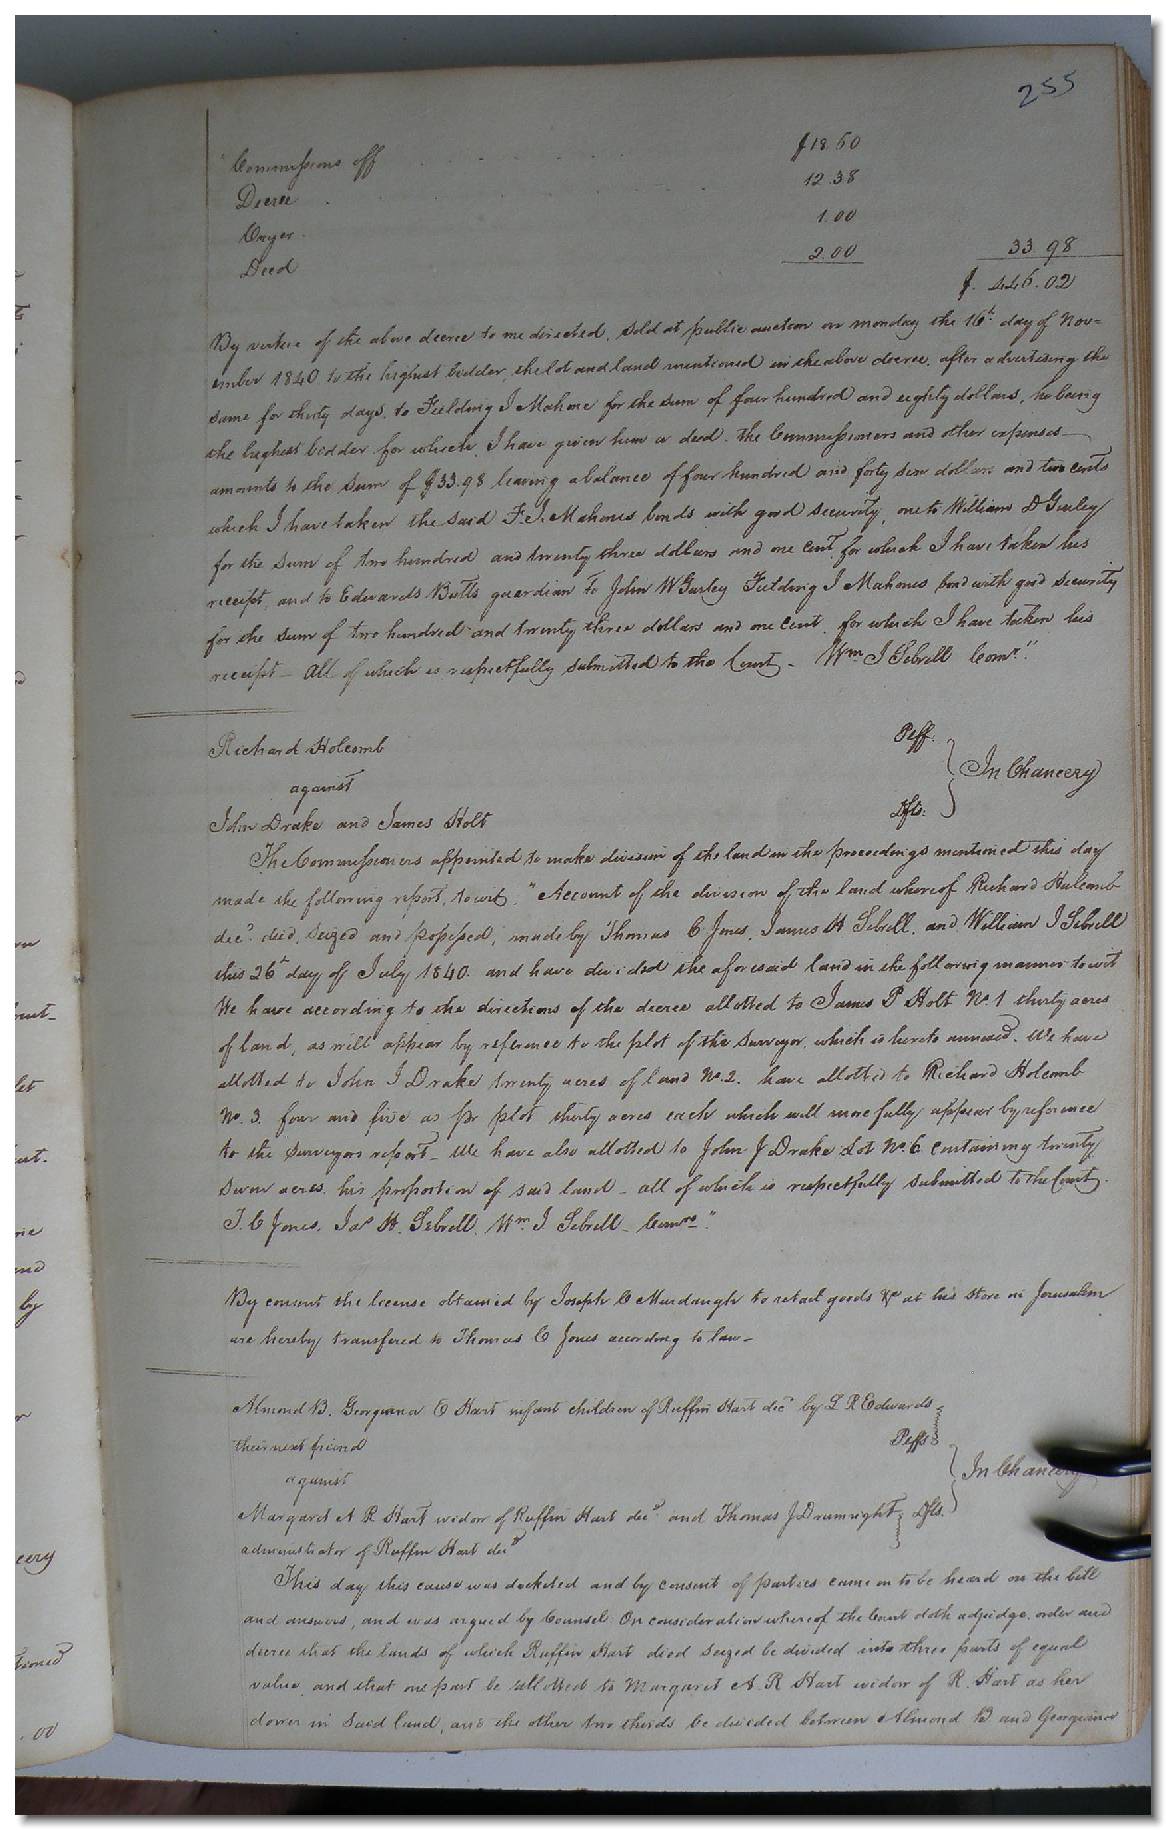 255
Commissions off . . . . $18.60
Decree . . . . 12.38
Oryer . 1.00
Deed 2.00 33 98
$. 446.02
By vertue of the above decree to me directed, sold at public auction on monday the 16th day of Nov=
ember 1840 to the highest bidder, the lot and land mentioned in the above decree, after advertising the
same for thirty days, to Fielding I Mahone for the sum of four hundred and eighty dollars, he being
the highest bidder for which, I have given him a deed. the Commissioners and other expenses
amounts to the sum of $33.98 leaving a balance of four hundred and forty six dollars and two cents
which I have taken the said F. I. Mahones bonds with good security, one to William D Gurley
for the sum of two hundred and twenty three dollars and one cent, for which I have taken his
receipt, and to Edwards Butts guardian to John W Gurley Fielding I Mahones bond with good security
for the sum of two hundred and twenty three dollars and one cent, for which I have taken his
receipt - All of which is respectfully submitted to the Court - Wm. I Sebrell Comr."
Richard Holcomb Plff.
against In Chancery
John Drake and James Holt Dfts.
The Commissioners appointed to make division of the land in the proceedings mentioned this day
made the following report, to wit, "Account of the division of the land whereof Richard Holcomb
decd. died, seized and possessed, made by Thomas C Jones, James H Sebrell, and William I Sebrell
this 26th day of July 1840. and have divided the aforesaid land in the following manner to wit
We have according to the directions of the decree allotted to James P Holt No. 1 thirty acres
of land, as will appear by reference to the plot of the surveyor, which is hereto annexed. We have
allotted to John I Drake twenty acres of land No. 2. have allotted to Richard Holcomb
No. 3. four and five as pr plot thirty acres each which will more fully appear by reference
to the surveyors report - We have also allotted to John J Drake Lot No. 6 containing twenty
seven acres, his proportion of said land - all of which is respectfully submitted to the Court.
T. C Jones, Jas H. Sebrell, Wm. I Sebrell - Comrs."
By consent the license obtained by Joseph C Murdaugh to retail goods &c at his store in Jerusalem
are hereby transfered to Thomas C Jones according to law -
Almond B. Georgiana C Hart infant children of Ruffin Hart decd by L R Edwards
their next friend Plffs
against In Chancery
Margaret A R Hart widow of Ruffin Hart decd and Thomas J Drumright Dfts.
administrator of Ruffin Hart decd
This day this cause was docketed and by consent of parties came on to be heard on the bill
and answers, and was argued by Counsel: On consideration whereof the Court doth adjudge, order and
decree that the lands of which Ruffin Hart died seized be divided into three parts of equal
value, and that one part be allotted to Margaret A. R Hart widow of R. Hart as her
dower in said land, and the other two thirds be divided between Almond B and Georgiana